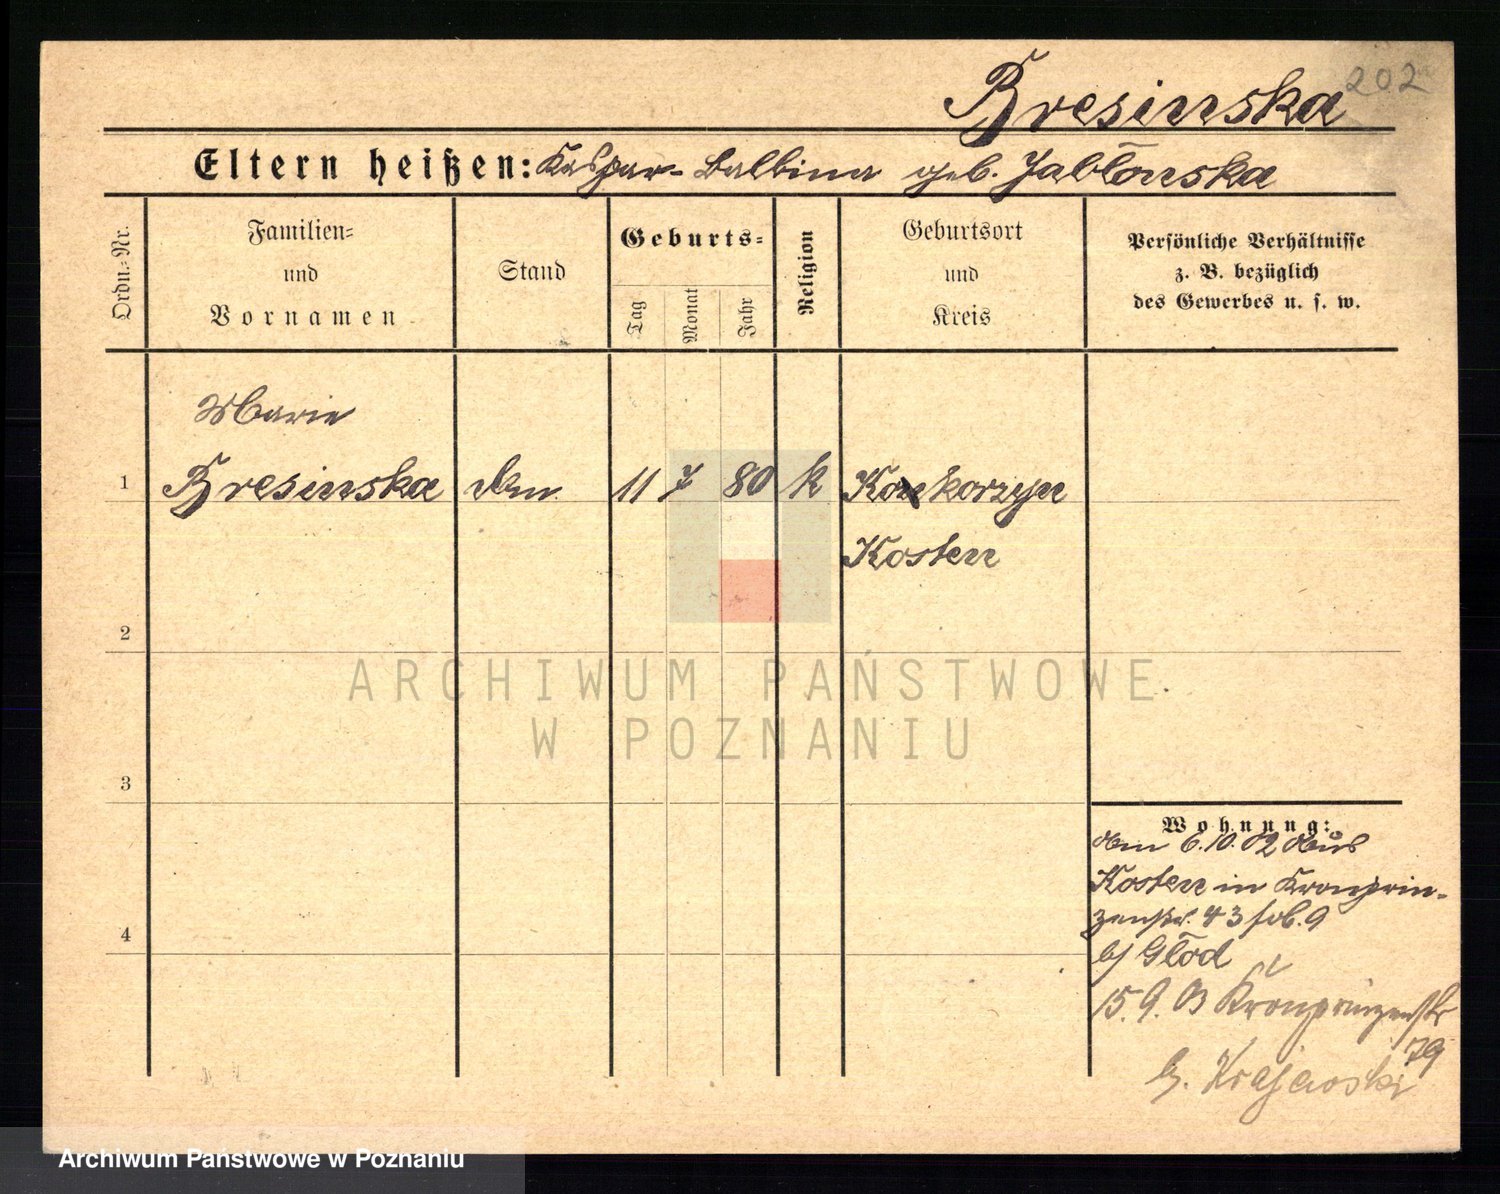 202
Bresinska
Eltern heißen: Kaspar - Balbina geb. Jabłonska
Ordn.-Nr.
Familien-
und
Vornamen
Stand
Geburts-
Tag
Monat
Jahr
Religion
Geburtsort
und
Kreis
Persönliche Verhältnisse
z. B. bezüglich
des Gewerbes u. s. w.
Marie
1 Bresinska 11 7 80 k korzyn
Kosten
2
3
4
Wohnung:
6.10.02 Aus
Kosten in Kronprin-
zenstr. 43 9
b/ Głod
15. 9. 03 Kronprinzenstr
79
b. Krajewski
ARCHIWUM PAŃSTWOWE
W POZNANIU
Archiwum Państwowe w Poznaniu